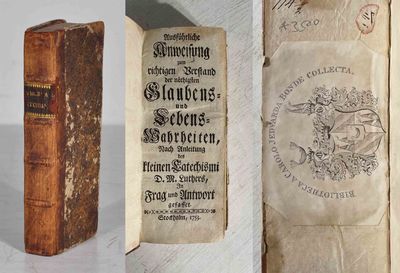 Ausführliche
Anweisung
zum
richtigen Verstand
der nöthigsten
Glaubens-
und
Lebens-
Wahrheiten,
Nach Anleitung
des
kleinen Catechismi
D. M. Luthers,
In
Frag und Antwort
gefasset.
Stockholm, 1753.
BIBLIOTHECA A CAROLO JEDVARDA BONDE COLLECTA.